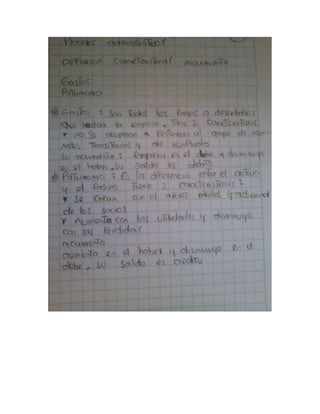 Procesos administrativos
Definicion caracteristicas movimiento
Gastos
Patrimonio
Gastos : Son todos los
que realiza la empresa, Tiene 2 caracteristicas
* no se recuperan * Pertenecen al grupo de
nales Transitorios y de resultado
Su movimiento : Empieza en el debe y disminuye
en el haber, su saldo es debito
Patrimonio : Es la diferencia entre el activo
y el Pasivo Tiene 2 caracteristicas :
* Se crean con el
de los socios
* Aumenta con las utilidades y disminuye
con las Perdidas
movimiento
aumenta en el haber y disminuye en el
debe, su saldo es credito